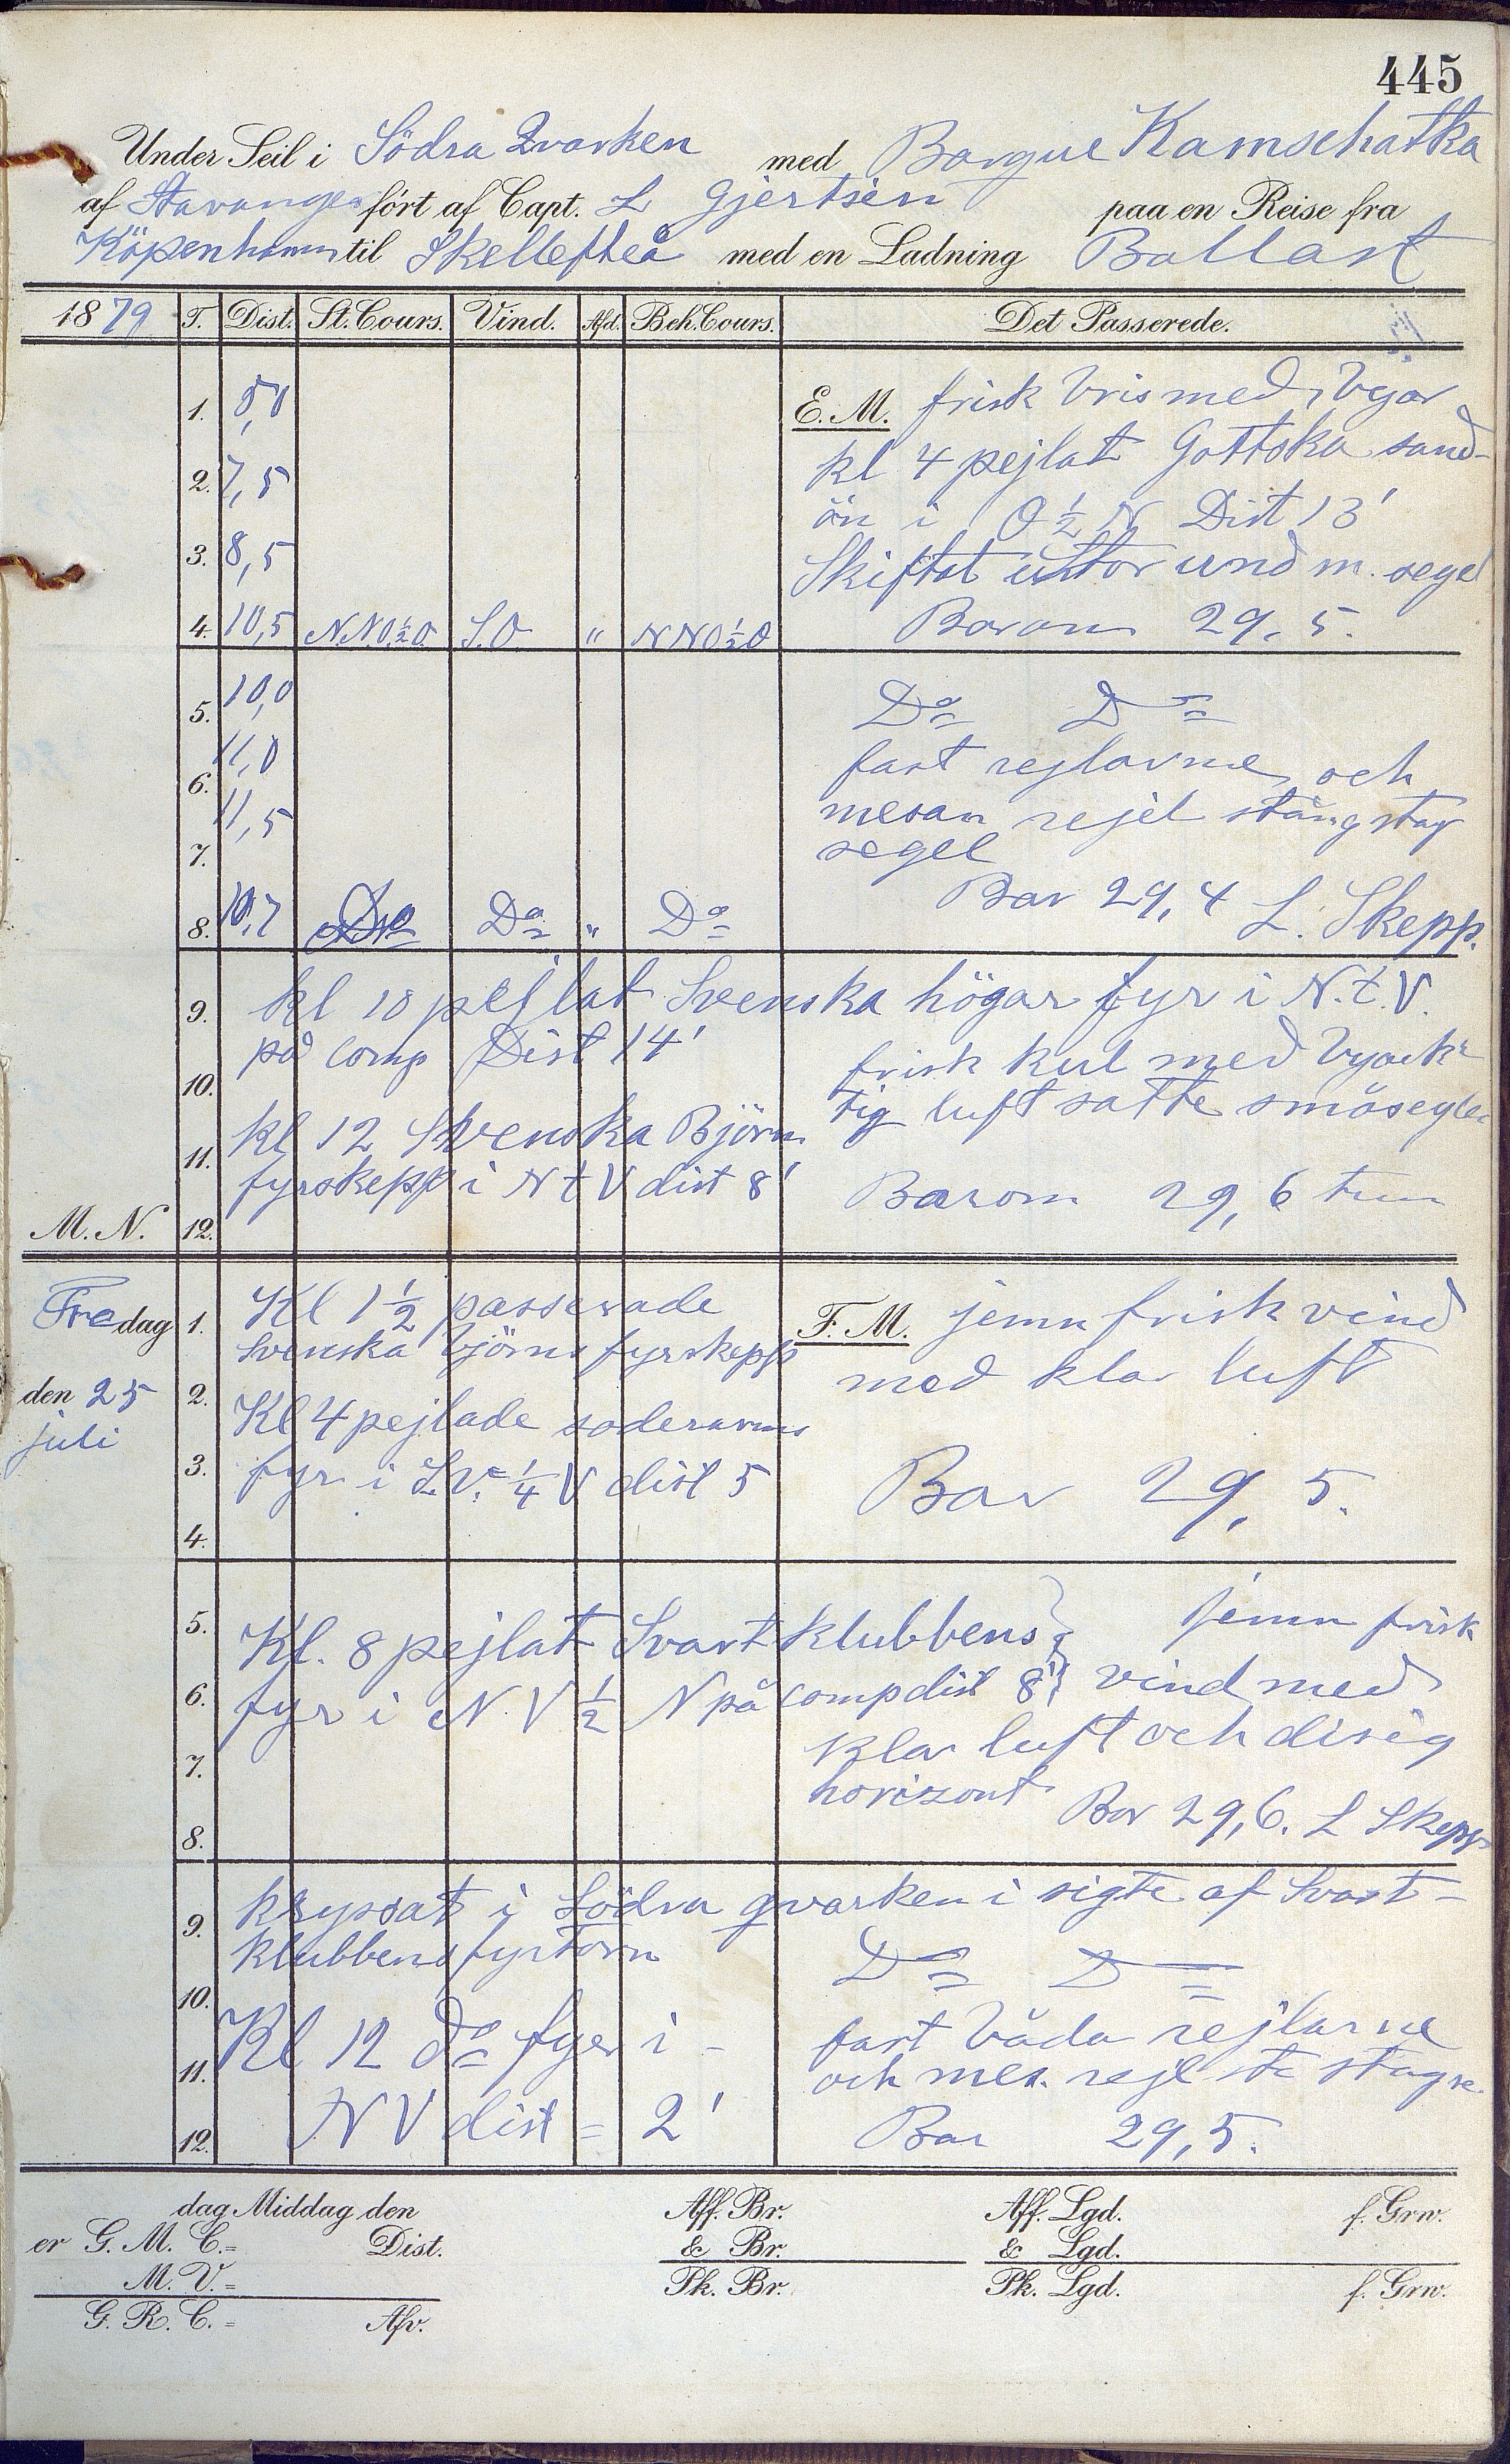 445
Under Seil i Södra Qvarken med Barque Kamschatka
af Stavanger fört af Capt. L Gjertsen paa en Reise fra
Köpenhamn til Skellefteå med en Ladning Ballast
1879 T. Dist. St. Cours. Vind. Afd. Beh. Cours. Det Passerede.
1. E. M. frisk bris med byar
2. 7,5 kl 4 pejlat Gottska sand-
ön i O ½ N Dist 13'
3. 8,5 Skiftat und m. segel
4. 10,5 N.N.O.½O. S.O. " N N O ½ O Barom 29,5.
5. 10,0 Do Do
6. 11,0 fast rejlarne och
7. 11,5 mesan rejel stängstag
segel
Bar 29,4 L. Skepp.
8. 10,7 Do Do " Do
9. kl 10 pejlat Svenska högar fyr i N. t. V.
på comp Dist 14'
10. frisk kul med byack-
tig luft satte småsegler
11. kl 12 Svenska Björn
fyrskepp i N t V dist 8' Barom 29,6 tum
M. N. 12.
Fredag 1. Kl 1½ passerade F. M. jemn frisk vind
Svenska björns fyrskepp
den 25 2. med klar luft
juli Kl 4 pejlade soderarms
3. fyr i S.V. ¼ V dist 5 Bar 29,5.
4.
5. Kl. 8 pejlat Svartklubbens jemn frisk
6. fyr i N. V ½ N på comp dist 8' vind med
7. klar luft och disig
horizont Bar 29,6. L Skepp
8.
9. kryssat i Södra qvarken i sigte af Svart-
klubbens fyrtorn
10. Do Do
11. Kl 12 do fyr i - fast båda rejlarne
och mes. rejl st stagse.
12. N V dist = 2' Bar 29,5.
dag Middag den Aff. Br. Aff. Lgd. f. Grw.
er G. M. C.= Dist. & Br. & Lgd.
M. V.= Pk. Br. Pk. Lgd. f. Grw.
G. R. C.= Afv.